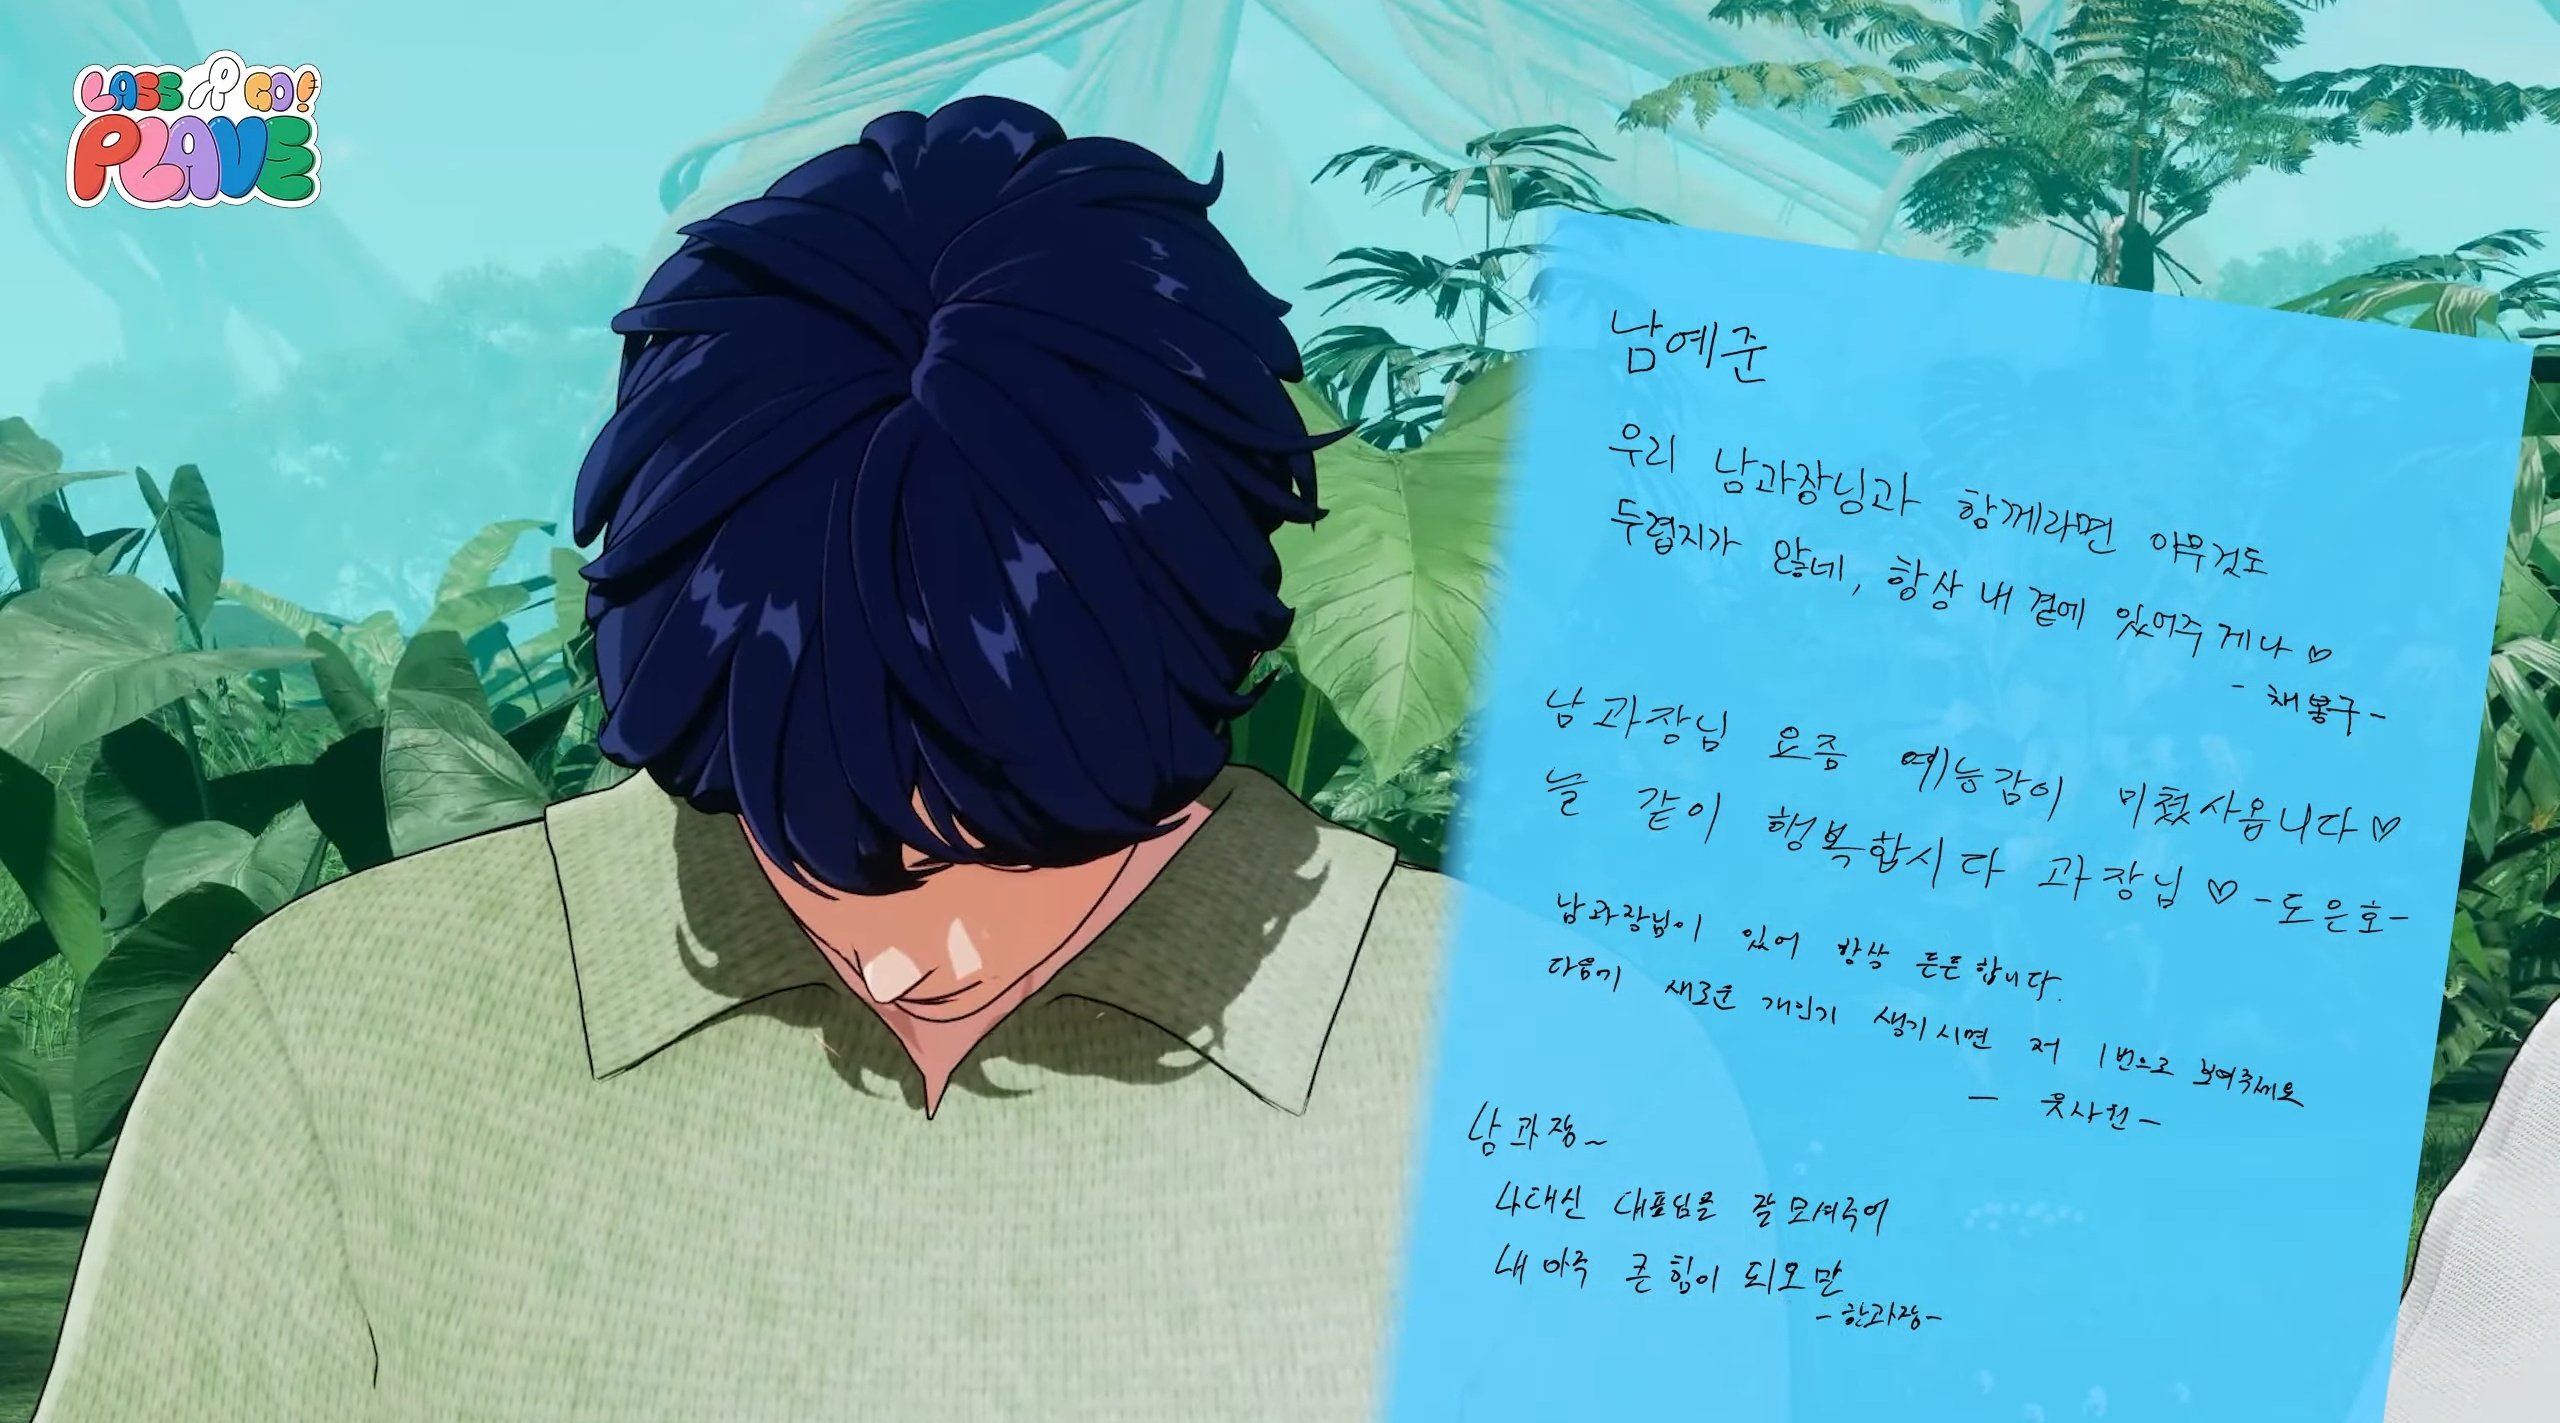 LASS GO!
PLAVE
남예준
우리 남과장님과 함께라면 아무것도
두렵지가 않네, 항상 내 곁에 있어주게나♡
- 채봉구 -
남과장님 요즘 예능감이 미쳤사옵니다♡
늘 같이 행복합시다 과장님♡ -도은호-
남과장님이 있어 항상 든든합니다.
다음기 새로운 개인기 생기시면 저 1번으로 보여주세요
- 웃사원 -
남과장~
나대신 대표님을 잘 모셔주어
내 아주 큰 힘이 되오만
-한과장-